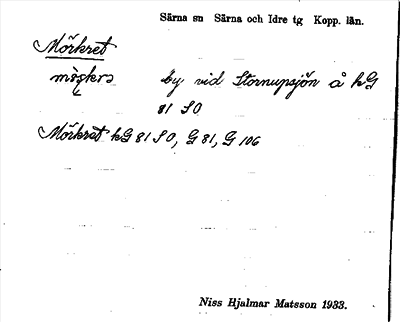 Särna sn Särna och Idre tg Kopp. län.
Mörkret
by vid Stornupsjön å kG
81 SO
Mörkret kG 81 SO, G 81, G 106
Niss Hjalmar Matsson 1933.